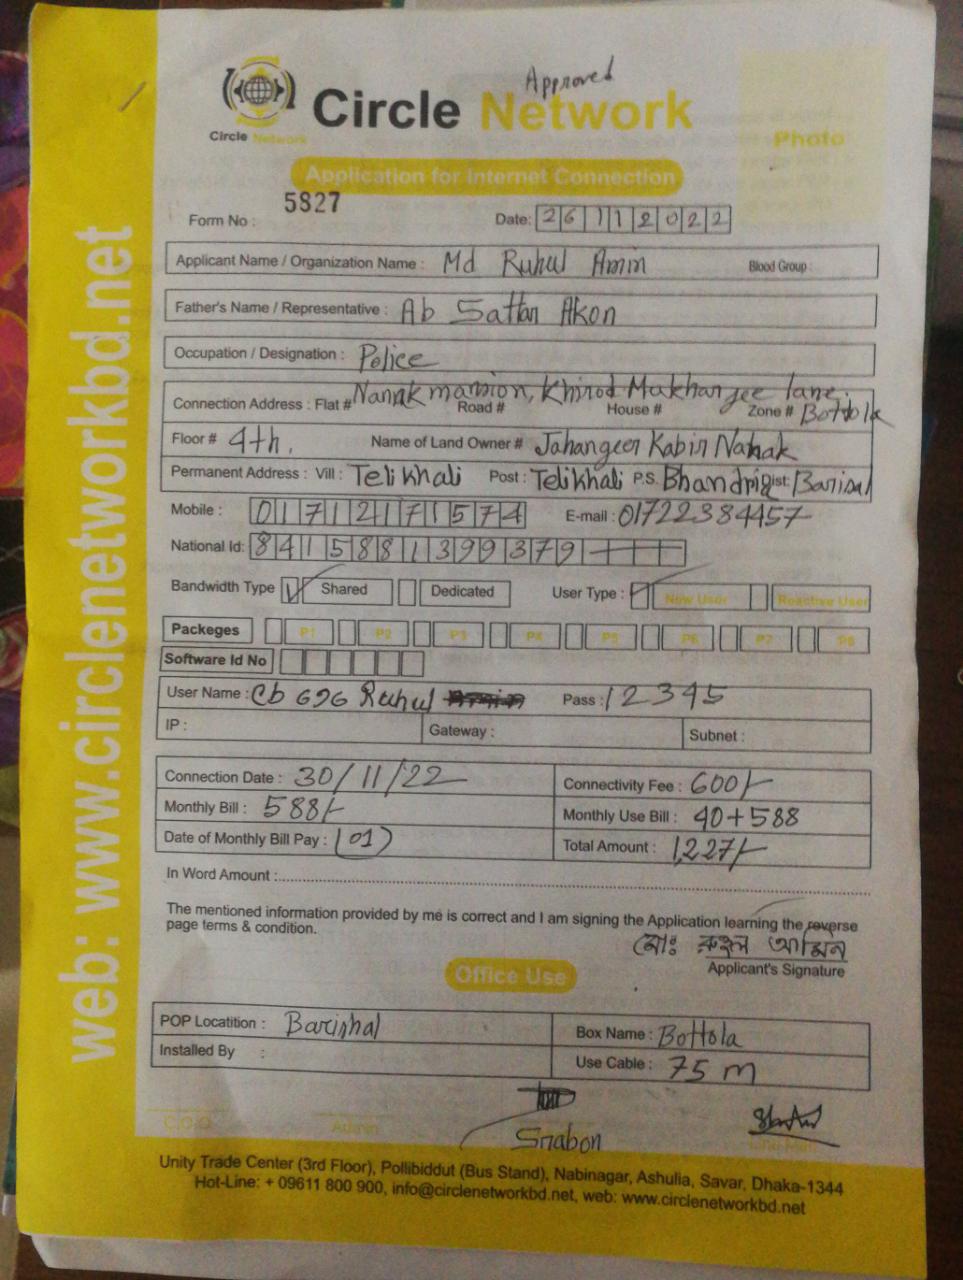 Approved
Circle Network
Circle Network
Photo
Application for Internet Connection
Form No : 5827
Date: 26112022
Applicant Name / Organization Name : Md Ruhul Amin Blood Group :
Father's Name / Representative : Ab Sattar Akon
Occupation / Designation : Police
Connection Address : Flat # Nanak mansion, Khirod Mukharjee lane, Road # House # Zone # Bottola
Floor # 4th, Name of Land Owner # Jahangeer Kabir Nanak
Permanent Address : Vill : Telikhali Post : Telikhali P.S. Bhandria Dist: Barisal
Mobile : 01712171574 E-mail : 01722384457
National Id: 8415881399379
Bandwidth Type Shared Dedicated User Type : New User Reactive User
Packeges P1 P2 P3 P4 P5 P6 P7 P8
Software Id No
User Name : Cb 696 Ruhul Pass : 12345
IP : Gateway : Subnet :
Connection Date : 30/11/22 Connectivity Fee : 600/-
Monthly Bill : 588/- Monthly Use Bill : 40+588
Date of Monthly Bill Pay : (01) Total Amount : 1,227/-
In Word Amount :
The mentioned information provided by me is correct and I am signing the Application learning the reverse
page terms & condition.
মোঃ রুহুল আমিন
Applicant's Signature
Office Use
POP Locatition : Barishal Box Name : Bottola
Installed By : Use Cable : 75 m
C.O.O Admin
Srabon
Unity Trade Center (3rd Floor), Pollibiddut (Bus Stand), Nabinagar, Ashulia, Savar, Dhaka-1344
Hot-Line: + 09611 800 900, info@circlenetworkbd.net, web: www.circlenetworkbd.net
web: www.circlenetworkbd.net